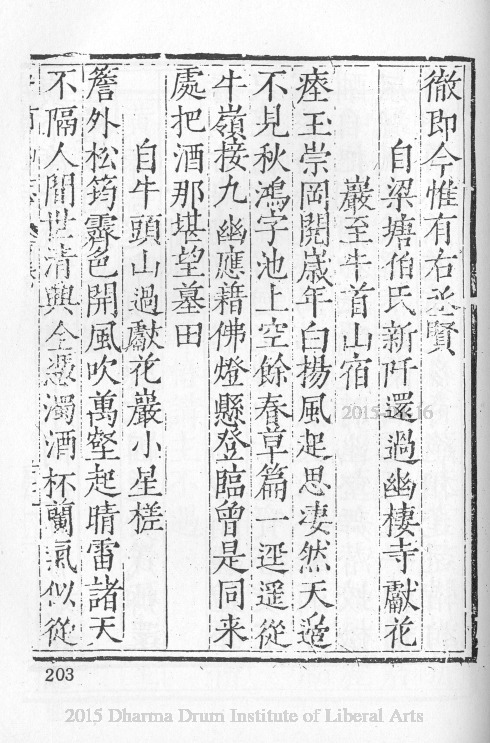 徹即今惟有右丞賢
自梁塘伯氏新阡還過幽棲寺獻花
巖至牛首山宿
瘞玉崇岡閱歲年白楊風起思凄然天邊
不見秋鴻字池上空餘春草篇一逕遥從
牛嶺接九幽應藉佛燈懸登臨曾是同来
處把酒那堪望墓田
自牛頭山過獻花巖小星槎
簷外松筠霽色開風吹萬壑起晴雷諸天
不隔人間世清興全憑濁酒杯蘭氣似從
203
2015 Dharma Drum Institute of Liberal Arts